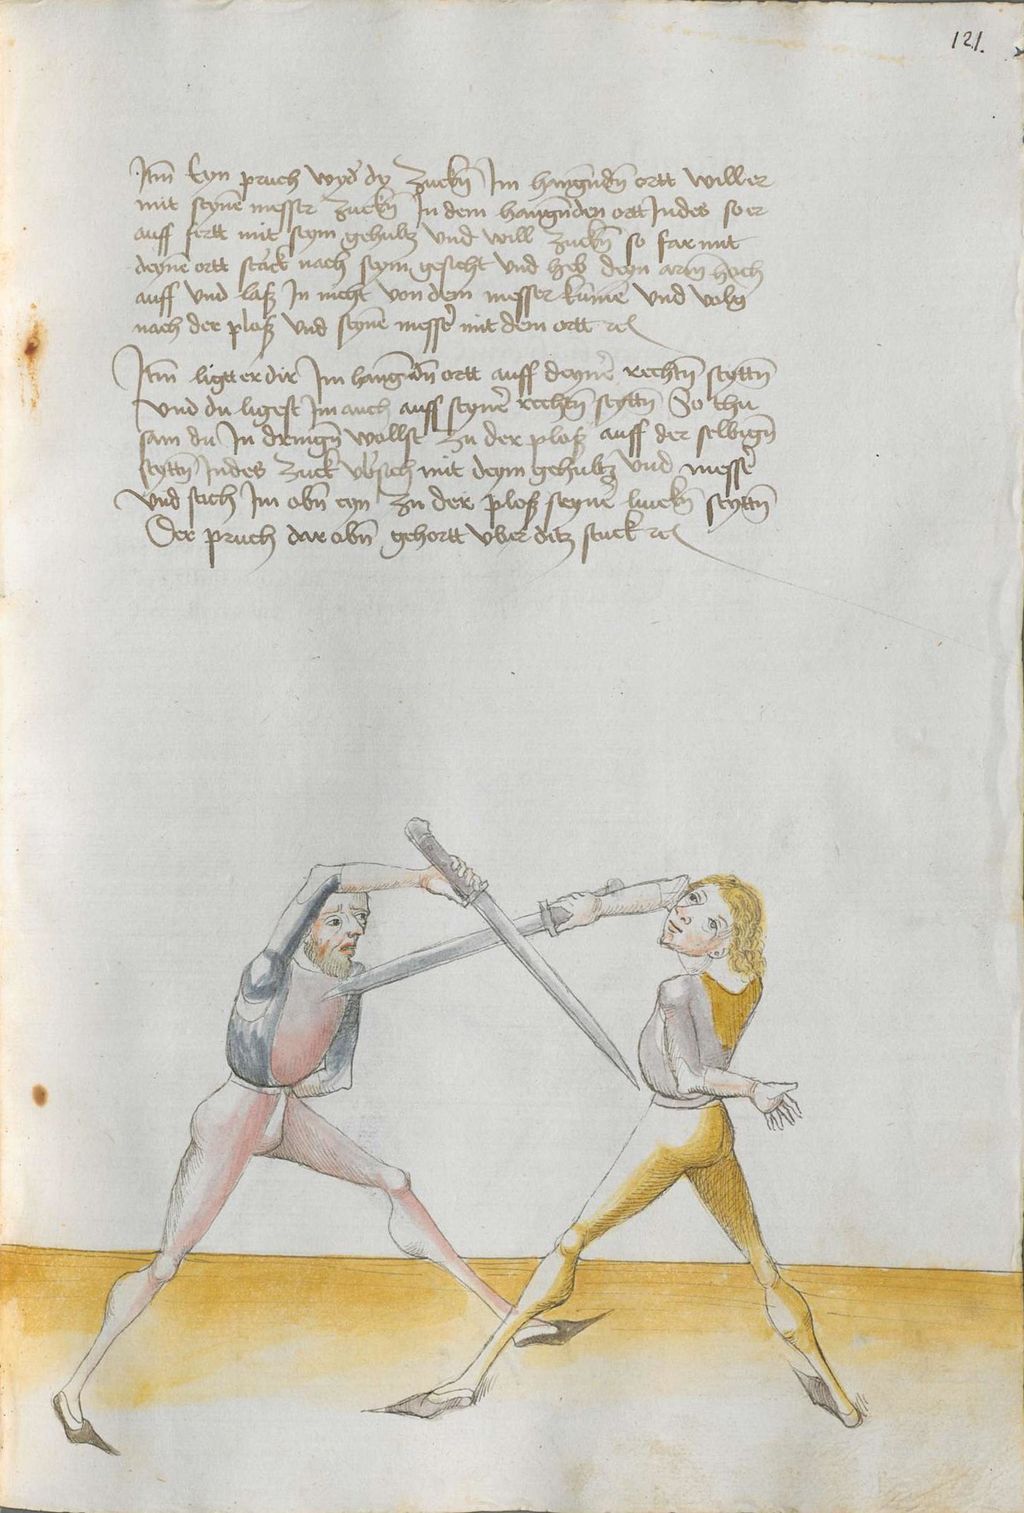 121.
Itm̄ Eyn pruch wyd' dy Zuckn̄ Im hangn̄dn̄ ortt will er
mit seynē messer Zuckn̄ In dem hangn̄den ortt Indes so er
auff fertt mit seym gehultz vnd will Zuckn̄ so far mit
deynē ortt starck nach seym gesicht vnd heb deyn arm̄ hoch
auff vnd laß In nicht von dem messer kumē vnd volg
nach der ploß vnd seynē messer mit dem ortt rc
Itm̄ ligt er dir Im hangn̄dn̄ ortt auff deyner rechtn̄ seyttn̄
vnd du ligest Im auch auff seyner rechtn̄ seyttn̄ So thu
sam du In dringn̄ wollst zu der ploß auff der selbign̄
seyttn̄ Indes Zuck vbersich mit deym gehultz vnd messer
vnd stich Im obn̄ eyn zu der ploß seyner linckn̄ seyttn̄
Der pruch dar obn̄ gehortt vber ditz stuck rc